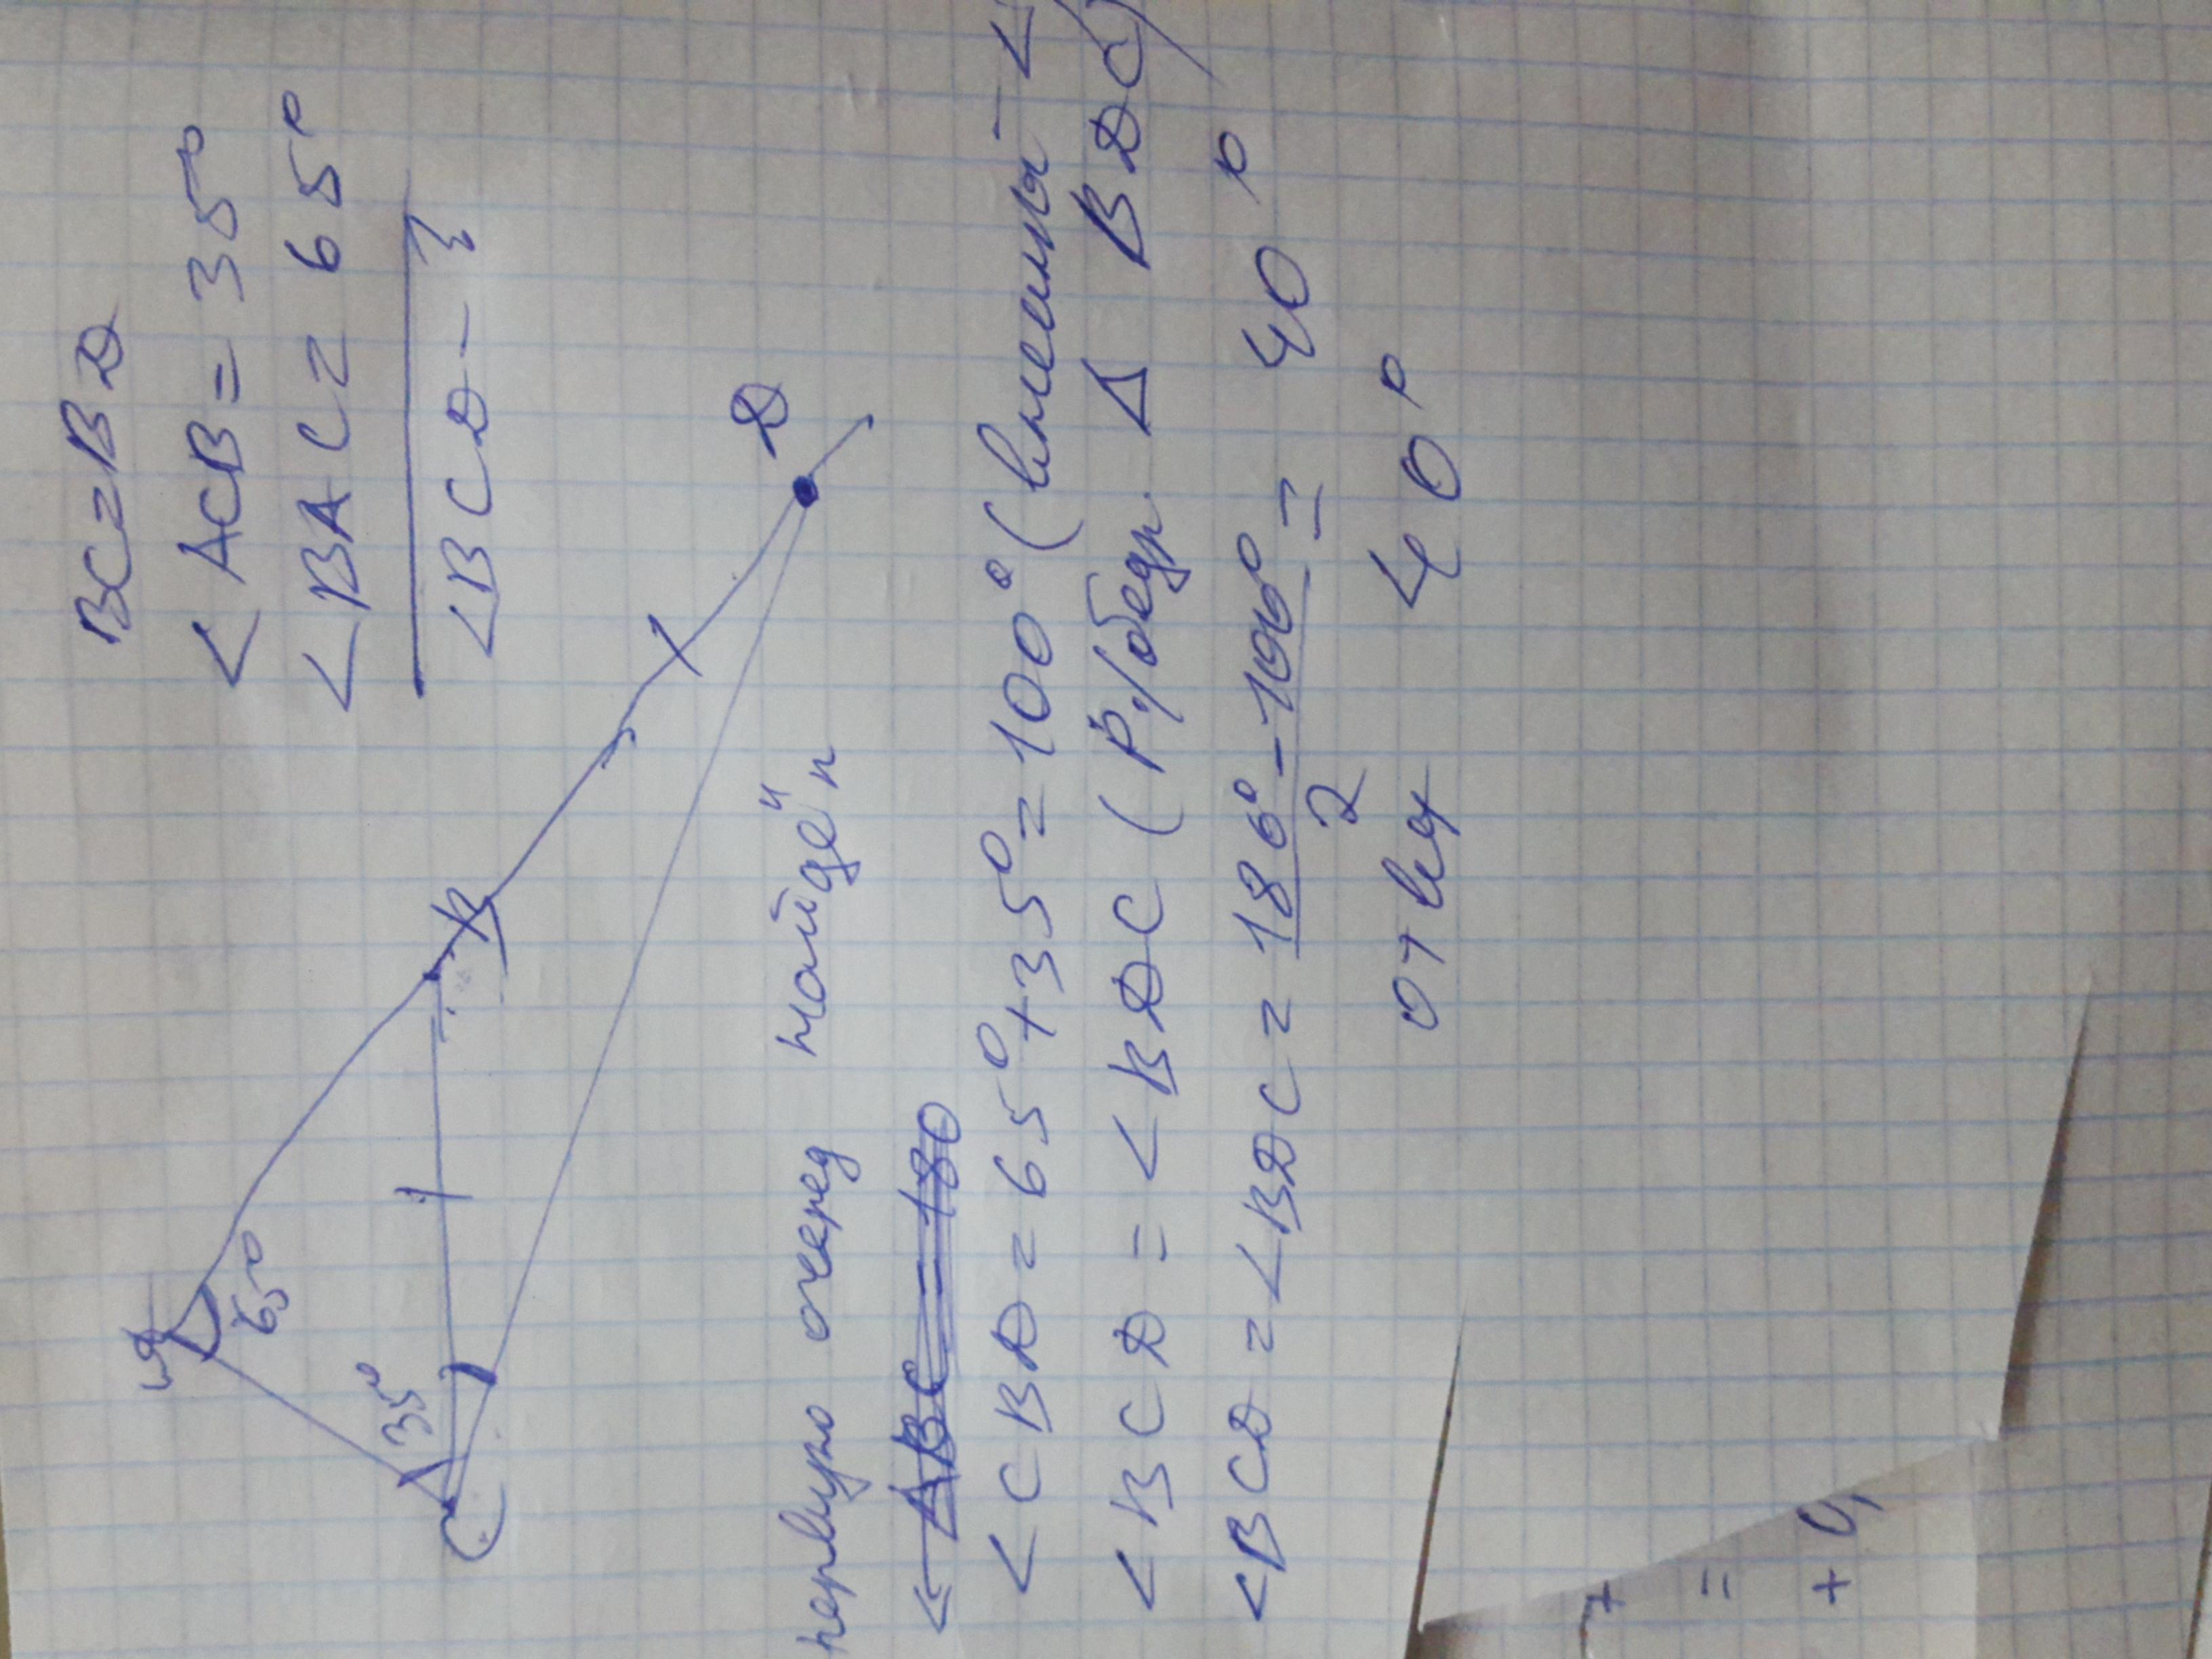 BC=BD
<ACB=35°
<BAC=65°
<BCD-?
65°
35°
C
B
D
первую очеред найдём
<ABC=180
<CBD=65°+35°=100° (внешны-<
<BCD=<BDC (р/бедр. Δ BDC)
<BCD=<BDC=180°-100°/2=40°
отвеч 40°
=
+